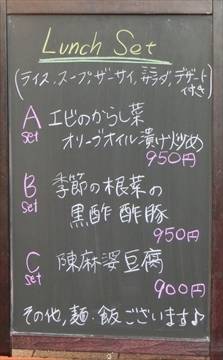 Lunch Set
(ライス、スープ、ザーサイ、サラダ、デザート付き)
A set エビのからし菜
オリーブオイル漬け炒め
950円
B set 季節の根菜の
黒酢 酢豚
950円
C set 陳麻婆豆腐
900円
その他,麺・飯ございます♪